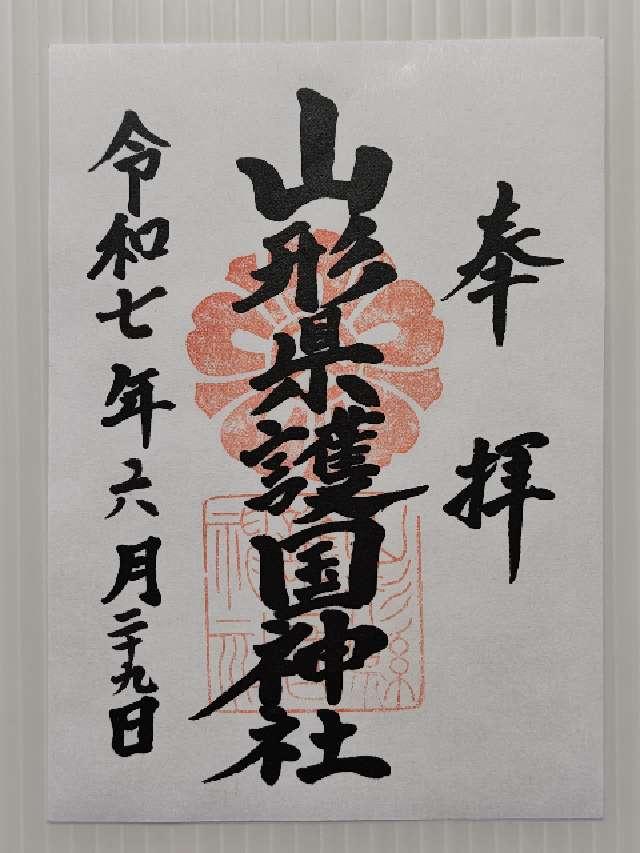 奉拝
山形県護国神社
令和七年六月二十九日